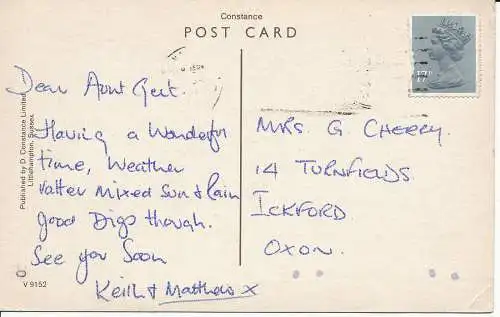 Constance
POST CARD
Dear Aunt Gert.
Having a Wonderful
time, Weather
ratter Mixed Sun & Rain
good Digs though.
See you Soon
Keith & Matthew X
MRS G CHERRY.
14 TURNFIELDS
ICKFORD
OXON.
17P
Published by D. Constance Limited,
Littlehampton, Sussex.
V 9152